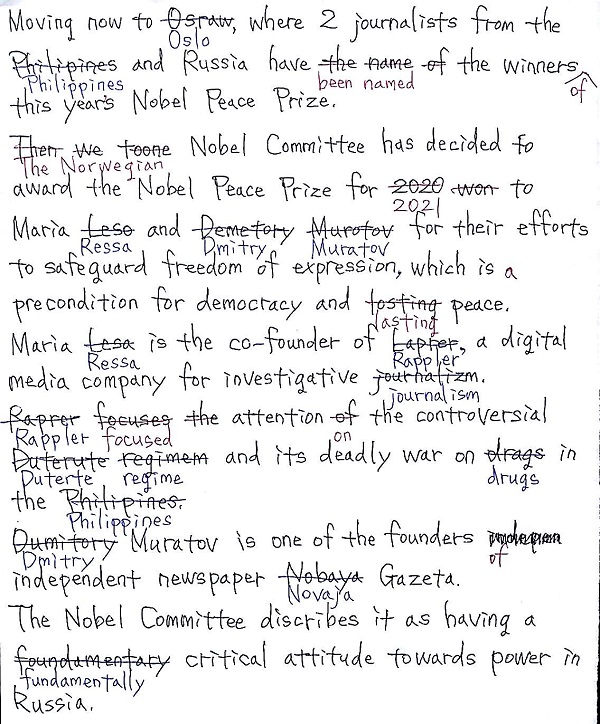 Moving now to Osraw, where 2 journalists from the
Oslo
Philipines and Russia have the name of the winners
Philippines been named of
this year's Nobel Peace Prize.
Then we toone Nobel Committee has decided to
The Norwegian
award the Nobel Peace Prize for 2020 won to
2021
Maria Leso and Demetory Murotov for their efforts
Ressa Dmitry Muratov
to safeguard freedom of expression, which is a
precondition for democracy and tosting peace.
lasting
Maria Lesa is the co-founder of Lapper, a digital
Ressa Rappler
media company for investigative journalizm.
journalism
Raprer focuses the attention of the controversial
Rappler focused on
Duterute regimem and its deadly war on drags in
Duterte regime drugs
the Philipines.
Philippines
Dumitory Muratov is one of the founders
Dmitry of
independent newspaper Nobaya Gazeta.
Novaja
The Nobel Committee discribes it as having a
foundamentary critical attitude towards power in
fundamentally
Russia.